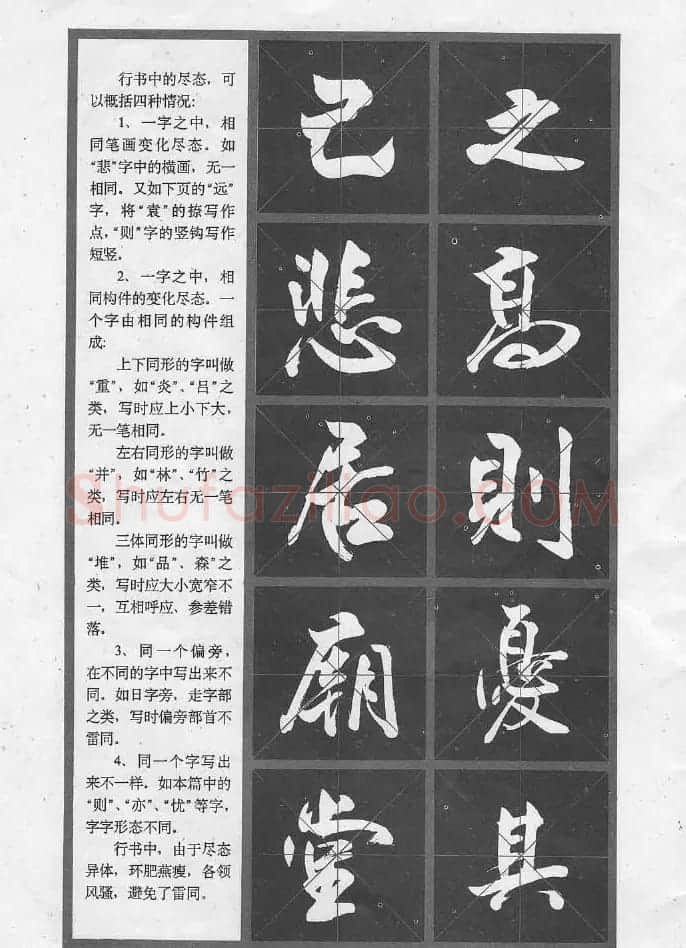 行书中的尽态，可
以概括四种情况：
1、一字之中，相
同笔画变化尽态。如
“悲”字中的横画，无一
相同。又如下页的“远”
字，将“袁”的捺写作
点，“则”字的竖钩写作
短竖。
2、一字之中，相
同构件的变化尽态。一
个字由相同的构件组
成：
上下同形的字叫做
“重”，如“炎”、“吕”之
类，写时应上小下大，
无一笔相同。
左右同形的字叫做
“并”，如“林”、“竹”之
类，写时应左右无一笔
相同。
三体同形的字叫做
“堆”，如“品”、森”之
类，写时应大小宽窄不
一，互相呼应、参差错
落。
3、同一个偏旁，
在不同的字中写出来不
同。如日字旁，走字部
之类，写时偏旁部首不
雷同。
4、同一个字写出
来不一样。如本篇中的
“则”、“亦”、“忧”等字，
字字形态不同。
行书中，由于尽态
异体，环肥燕瘦，各领
风骚，避免了雷同。
己悲居廟堂
之高則憂其
Shufaziliao.COM